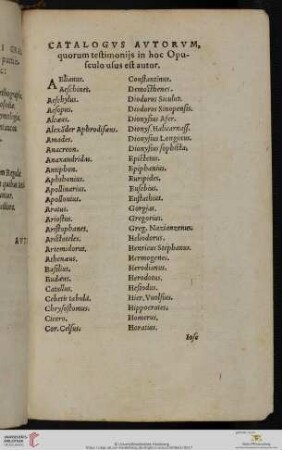 CATALOGVS AVTORVM,
quorum testimonijs in hoc Opu-
sculo usus est autor.
AElianus.
Aeschines.
Aeschylus.
Aesopus.
Alcæus.
Alexāder Aphrodisæus.
Amodes.
Anacreon.
Anaxandridas.
Antiphon.
Aphthonius.
Apollinarius.
Apollonius.
Aratus.
Ariostus.
Aristophanes.
Aristoteles.
Artemidorus.
Athenæus.
Basilius.
Budæus.
Catullus.
Cebetis tabula.
Chrysostomus.
Cicero.
Cor. Celsus.
Constantinus.
Demosthenes.
Diodorus Siculus.
Diodorus Sinopensis.
Dionysius Afer.
Dionys. Halicarnass.
Dionysius Longinus.
Dionysius sophista.
Epictetus.
Epiphanius.
Euripides.
Eusebius.
Eustathius.
Gorgias.
Gregorius.
Greg. Nazianzenus.
Heliodorus.
Henricus Stephanus.
Hermogenes.
Herodianus.
Herodotus.
Hesiodus.
Hier. Vuolfius.
Hippocrates.
Homerus.
Horatius.
Iose